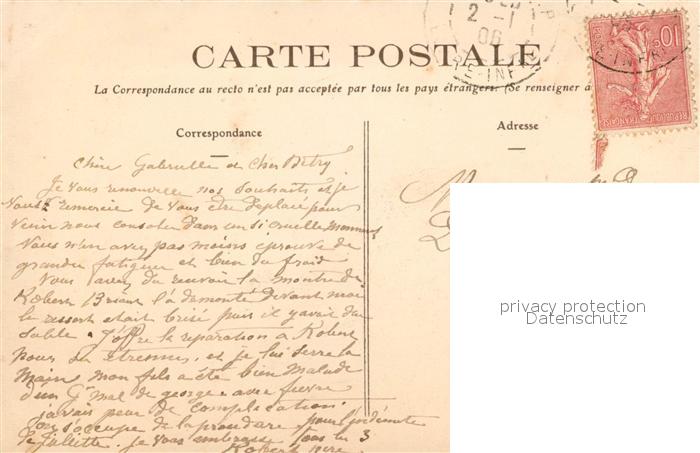 2 -1
06
CARTE POSTALE
La Correspondance au recto n'est pas acceptée par tous les pays étrangers. (Se renseigner à
Correspondance
Adresse
POSTES
10
REPUBLIQUE FRANÇAISE
Chère Gabrielle et Cher Détry
Je vous renouvelle nos souhaits et je
vous remercie de vous être déplacé pour
venir nous consoler dans un si cruelle moments
Vous n'en avez pas moins éprouvé de
grande fatigue et bien du froid
Vous avez du recevoir la montre de
Robert Briant l'a démonté devant moi
le ressort était brisé puis il y avait du
sable. J'offre la réparation à Robert
pour ses étrennes, et je lui serre la
main mon fils a été bien malade
d'un Gd mal de gorge avec fièvre
j'avais peur de complication
on s'occupe de la procédure pour
de Juliette. je vous embrasse tous les 3
Robert père
privacy protection
Datenschutz